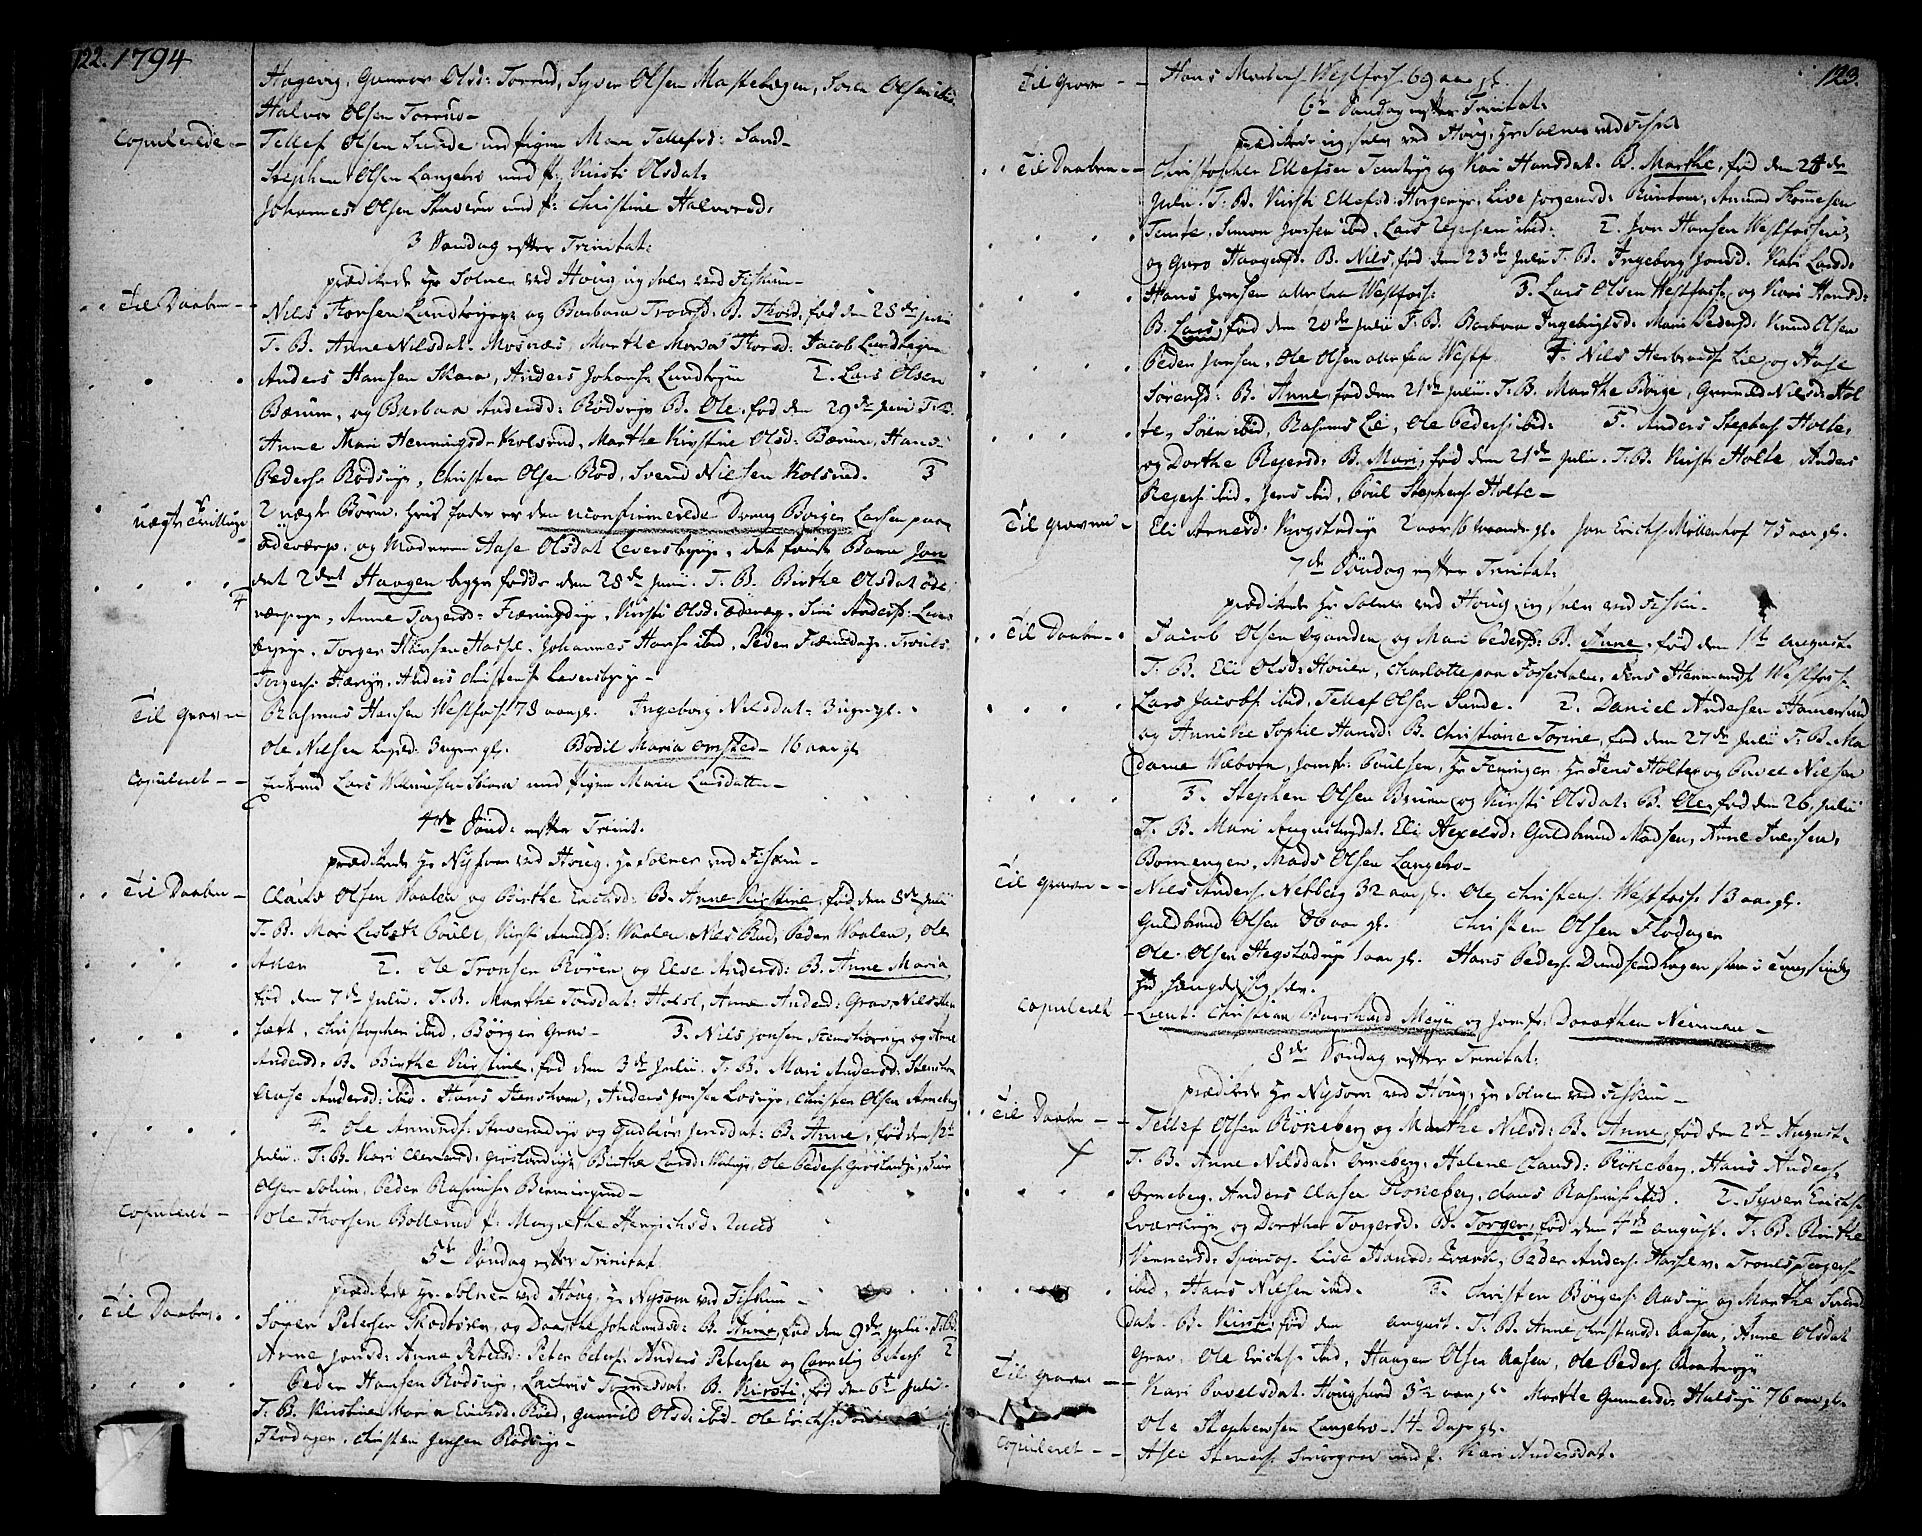 122. 1794
Hagevig, Gunnor Olsd: Torrud, Syver Olsen Mastebogen, Søren Olsen ibid.
Halvor Olsen Torrud
Copulerede Tellef Olsen Sunde med pigen Mari Tellefsd: Sand
Stephen Olsen Langebro med p: Kirsti Olsdat:
Johannes Olsen Staverud med p: Christine Halvorsd:
3 Søndag efter Trinitat:
prædikede Hr Solner ved Houg ingen ved Fiskum
Til Daaben Nils Thorsen Lundebyeye og Barbara Tronsd: B. Thord, fød den 28de Junii
T. B. Anne Nilsdat. Mosnæs, Marthe Thorsd: Jacob Lundbyeie
Anders Hansen Skara, Anders Johans: Lundbyeie 2. Lars Olsen
Bærum, og Barbara Andersd: Rødseye B. Ole, fød den 29de Juni T. B.
Anne Mari Henningsd: Kolsrud, Marthe Kirstine Olsd: Bærum, Hans
Peders: Rødseye, Christen Olsen Rød, Svend Nielsen Kolsrud. 3
uægte Tvillinge 2 uægte Børn, hvis fader er den uconfirmerede Dreng Børger Larsen paa
Ødeværp, og Moderen Aase Olsdat Leversbyeye, det første Barn Jon
det 2det Haagen begge fødde den 28de Juni. T. B. Birthe Olsdat Øde
4
værpeye, Anne Torgersd: Fieringdye, Kirsti Olsd: Ødevæg, Siri Anders: Lev
byeye, Torger Hansen Hassel, Johannes Hans: ibid, Peder Fierndeye, Trouls
Torgers: Færeye, Anders Christens: Leversbyeye
Til Graven Rasmus Hansen Westfos: 78 aar gl. Ingeborg Nilsdat: 3 uger gl.
Ole Nilsen 3 uger gl. Bodil Maria Omsted 16 aar gl
Copuleret Enkem: Lars Skara med Pigen Maria Larsdatter
4de Sønd: efter Trinit.
prædikede Hr Nysom ved Houg, Hr Solner ved Fiskum
Til Daaben Claus Olsen Waalen og Birthe Erichsd: B. Anne Kirstine, fød den 8de Julii
T. B. Mari Lisbeth Poule, Kirsti Amundsd: Waalen, Nils Rud, Peder Waalen, Ole
Aslen 2. Ole Tronsen Røren og Else Andersd: B. Anne Maria
fød den 7de Julii. T. B. Marthe Torsdat: Hobsl, Anne Andersd: Grav, Nils Sten
sæth, Christopher ibid, Børger Grav 3. Nils Jonsen Stenshorneye og Anne
Andersd: B. Birthe Kirstine, fød den 3de Julii. T. B. Mari Andersd: Stenshorn
Aase Andersd: ibid. Hans Stenshorn, Anders Jonsen Loseye, Christen Olsen Arneberg
4. Ole Amunds: Staverudeye og Gudbiør Jensdat: B. Anne, fød den 1st
Julii. T. B. Kari Clemensd: Grøslandeye, Birthe Larsd: Ole Peders: Grøslandeye, Lars
Olsen Solum, Peder Rasmus: Bermingrud
Copuleret Ole Thorsen Bollerud p: Margrethe Henrichsd: Lund
5te Søndag efter Trinitat.
prædikede Hr. Solner ved Houg, Hr Nysom ved Fiskum
Til Daaben Søren Petersen Skodtsren, og Dorthe Johannesd: B. Anne, fød den 9de Julii. T. B.
Anne Jonsd: Anne Petersd: Peter Peters: Anders Petersen og Cornelig Peters: 2
Peder Hansen Rødseye, Lauvis Torresdat. B. Kirsti, fød den 6te Juli.
T. B. Kirstine Maria Eversd: Røed, Gunnild Olsd: ibid. Ole Erichs:
Flodagen, Christen Jensen Rødseye
123.
Til Graven Hans Mortens: Westfos: 69 aar gl.
6te Søndag efter Trinitat:
prædikede ingen ved Houg, Hr Solner ved Fiskum
Til Daaben Christopher Ellefsen Temteye og Kari Hansdat. B. Marthe, fød den 24de
Julii. T. B. Kirsti Ellefsd: Horgeneye, Live Jorgensd: Amund Størresen
Temte, Simon Jonsen ibid, Lars ibid: 2. Jon Hansen Westfossen
og Guro Haagens: B. Nils, fød den 23de Julii T. B. Ingeborg Jonsd. Kari Larsd.
Hans Jensen alle fra Westfoss: 3. Lars Olsen Westfoss: og Kari Hansd:
B. Lars, fød den 20de Julii T. B. Barbara Ingebrigtsd: Mari Pedersd: Knud Olsen
Peder Jensen, Ole Olsen alle fra Westf: 4. Nils Herbrands: Lie og Aase
Sørensd: B. Anne, fød den 21de Julii. T. B. Marthe Børge, Gunnild Nilsd: Hol
te, Søren ibid, Rasmus Lie, Ole Peders: ibid: 5. Anders Stephens: Holte,
og Dorthe Reiersd: B. Mari, fød den 21de Juli. T. B. Kirsti Holte, Anders
Reiers: ibid. Jens ibid, Poul Stephens: Holte
Til Graven Eli Arnesd: Krogstadeye 2 aar 16 maaneder gl. Jon Erichs: Møllenhof 75 aar gl.
7de Søndag efter Trinitat:
prædikede Hr Solner ved Houg, ingen ved Fiskum.
Til Daaben Jacob Olsen Øganden og Mari Peders: B. Anne, fød den 1st August.
T. B. Eli Olsd: Houen, Charlotte paa Fossesholm, Jens Hermands: Westfoss:
Lars Jacobs: ibid, Tellef Olsen Sunde. 2. Daniel Andersen Hamersund
og Annike Sophie Hansd: B. Christiane Torine, fød den 27de Julii T. B. Ma
dame Wæborn, Jomf: Poulsen, Hr Feninger, Hr Jens Holter og Pavel Nilsen
3. Stephen Olsen Bruun og Kirsti Olsdat: B. Ole, fød den 26 Julii
T. B. Mari Augustusdat. Eli Axelsd: Guldbrand Madsen, Arne Iversen,
Bomengen, Mads Olsen Langebro
Til Graven Nils Anders: Neteberg 32 aar gl. Ole Christens: Westfoss: 13 aar gl.
Guldbrand Olsen 86 aar gl. Christen Olsen Flodagen
Ole Olsen Hegstadeye 1 aar gl. Hans Peders: Dundsendhagen som i Tungsindig
hed hængde sig selv.
Copuleret Lieut: Christian Burchard Meyer og Jomf: Dorothea Neuman
8de Søndag efter Trinitat:
prædikede Hr Nysom ved Houg, Hr Solner ved Fiskum
Til Daaben Tellef Olsen Røkeberg og Marthe Nilsd: B. Anne, fød den 2de August.
T. B. Anne Nilsdat: Orneberg, Helene Clausd: Røkeberg, Hans Anders:
Orneberg, Anders Clasen Rokeberg, Claus Rasmus: ibid. 2. Syver Erichs:
Qværkeye og Dorthe Torgersd: B. Torger, fød den 4de August. T. B. Birthe
Vennersd: Live Hansd: Qværk, Peder Anders: Hassel, Trouls Torgers:
ibid, Hans Nielsen ibid. 3. Christen Børgers: Aaseye og Marthe Svend
dat. B. Kirsti, fød den August. T. B. Anne Christensd: Aasen, Anne Olsdat
Grav, Ole Erichs: ibid, Haagen Olsen Aasen, Ole Peders:
Til Graven Kari Pavelsdat. Hougsrud 3½ aar gl. Marthe Gunnersd: Halseye 76 aar gl.
Ole Stephensen Langebro 14 Dage gl.
Copuleret Aslle Steners: Smørgrav med p. Kari Andersdat.